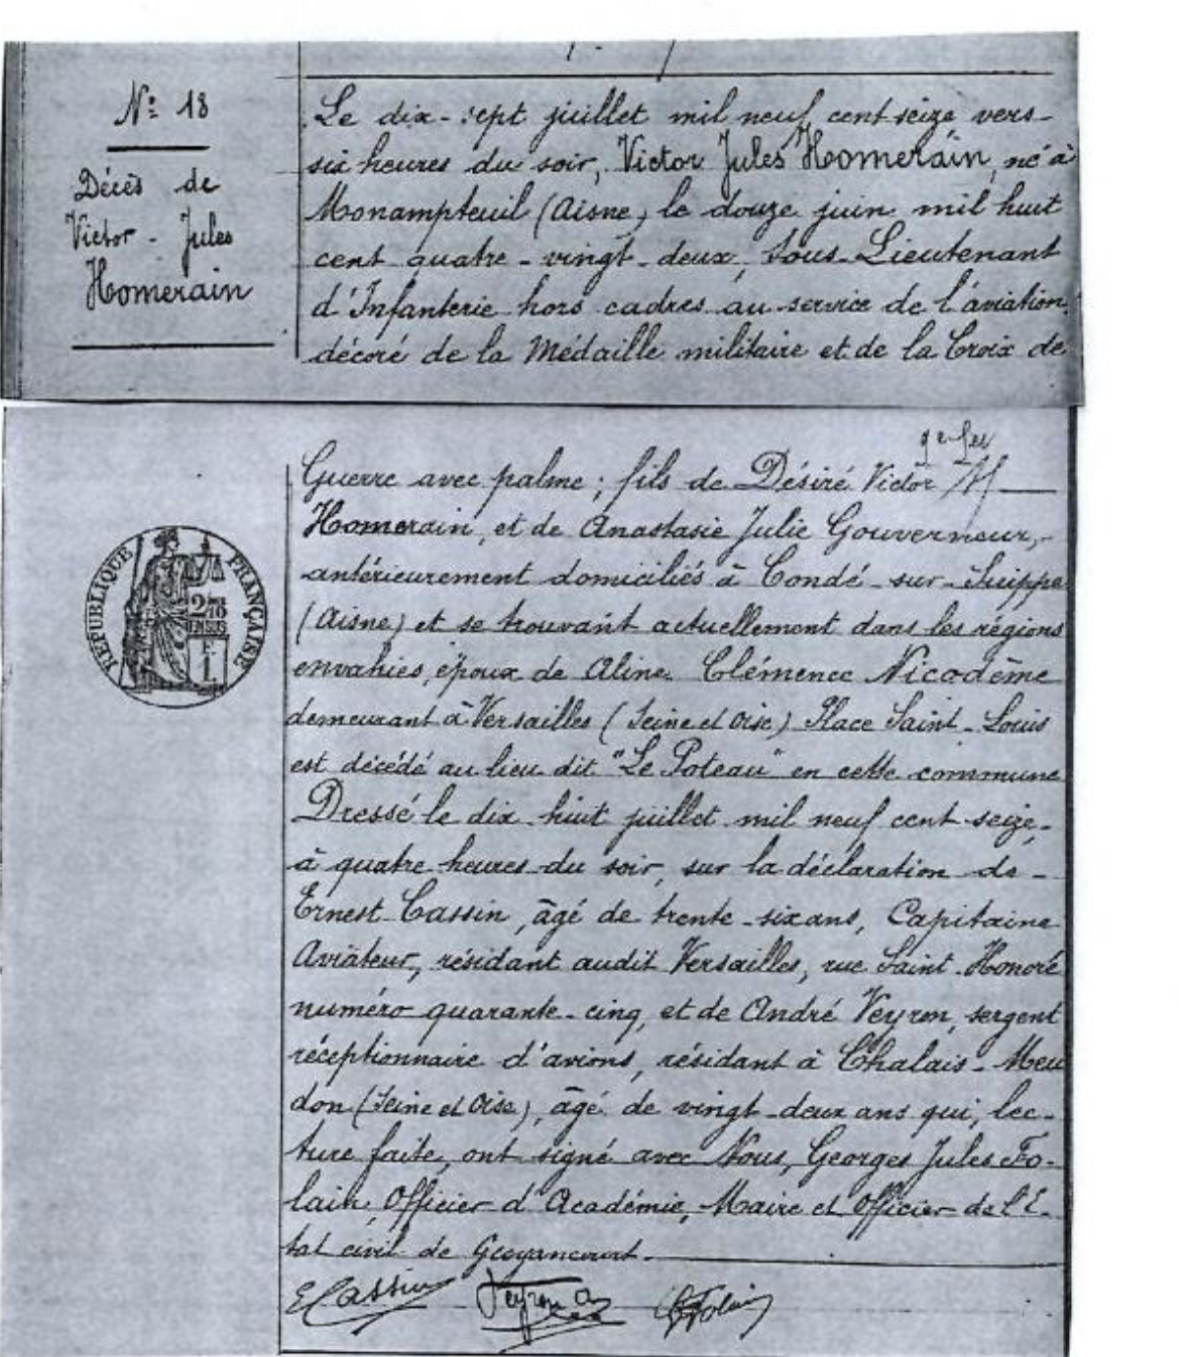 N° 18
Décès de
Victor - Jules
Homerain
Le dix-sept juillet mil neuf cent seize vers
six heures du soir, Victor Jules Homerain, né à
Monampteuil (Aisne) le douze juin mil huit
cent quatre-vingt-deux, Sous-Lieutenant
d'Infanterie hors cadres au service de l'aviation,
décoré de la Médaille militaire et de la Croix de
Guerre avec palme ; fils de Désiré Victor
Homerain, et de Anastasie Julie Gouverneur,
antérieurement domiciliés à Condé-sur-Suippe
(Aisne) et se trouvant actuellement dans les régions
envahies, époux de Aline Clémence Nicodème
demeurant à Versailles (Seine et Oise) Place Saint-Louis
est décédé au lieu dit "Le Poteau" en cette commune
Dressé le dix huit juillet mil neuf cent seize,
à quatre heures du soir, sur la déclaration de
Ernest Cassin, âgé de trente-six ans, Capitaine
Aviateur, résidant audit Versailles, rue Saint-Honoré
numéro quarante-cinq, et de André Veyron, sergent
réceptionnaire d'avions, résidant à Chalais-Meu
don (Seine et Oise), âgé de vingt-deux ans qui, lec-
ture faite, ont signé avec Nous, Georges Jules Fo-
lain, Officier d'Académie, Maire et Officier de l'E-
tat civil de Guyancourt.
E Cassin Veyron A G Folain
RÉPUBLIQUE FRANÇAISE